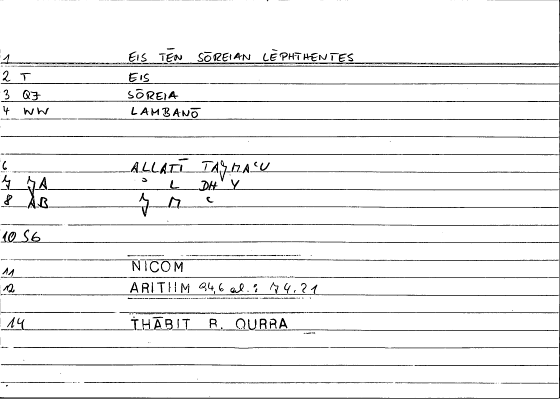 1 EIS TĒN SŌREIAN LĒPHTHENTES
2 T EIS
3 QJ SŌREIA
4 WW LAMBANŌ
6 ALLATĪ
8 AB
10 S6
11 NICOM
12 ARITHM 94,6 al.: 74,21
14 THĀBIT B. QURRA